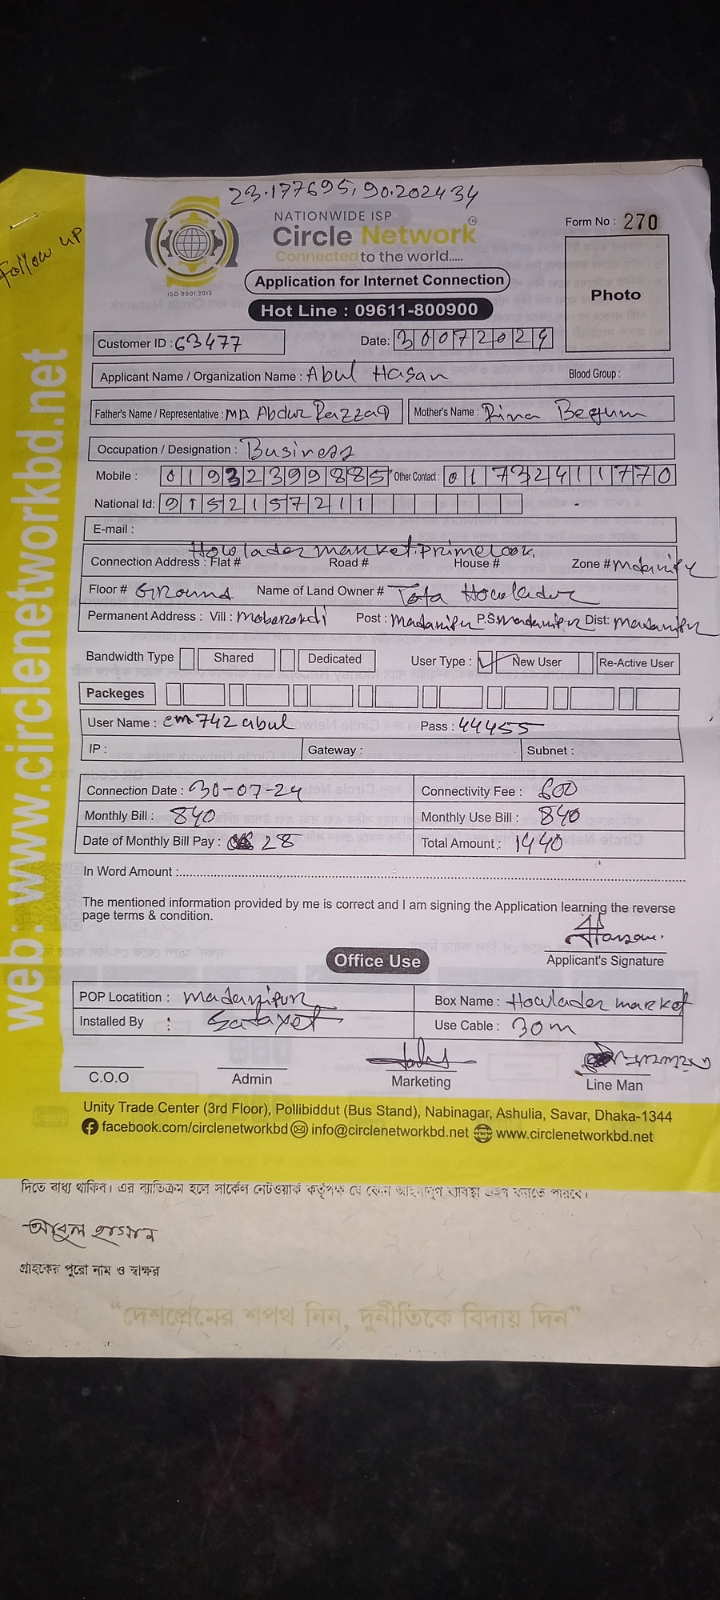 23.177695, 90.202434
Follow up
NATIONWIDE ISP
Circle Network
Connected to the world.....
ISO 9001:2015
Form No : 270
Application for Internet Connection
Photo
Hot Line : 09611-800900
Customer ID : 63477 Date: 30072024
Applicant Name / Organization Name : Abul Hasan Blood Group :
Father's Name / Representative : MD Abdur Razzaq Mother's Name : Rina Begum
Occupation / Designation : Business
Mobile : 01932399885 Other Contact : 01732411770
National Id: 9152157211
E-mail :
Howlader market, Primelook,
Connection Address : Flat # Road # House # Zone # Madaripur
Floor # Ground Name of Land Owner # Tota Howlader
Permanent Address : Vill : Post : Madaripur P.S Madaripur Dist: Madaripur
Bandwidth Type Shared Dedicated User Type : ✓ New User Re-Active User
Packeges
User Name : cm742abul Pass : 44455
IP : Gateway : Subnet :
Connection Date : 30-07-24 Connectivity Fee : 600
Monthly Bill : 840 Monthly Use Bill : 840
Date of Monthly Bill Pay : 28 Total Amount : 1440
In Word Amount :
The mentioned information provided by me is correct and I am signing the Application learning the reverse
page terms & condition.
Hasan
Applicant's Signature
Office Use
POP Locatition : Madaripur Box Name : Howlader market
Installed By : Use Cable : 30m
C.O.O Admin Marketing Line Man
Unity Trade Center (3rd Floor), Pollibiddut (Bus Stand), Nabinagar, Ashulia, Savar, Dhaka-1344
facebook.com/circlenetworkbd info@circlenetworkbd.net www.circlenetworkbd.net
web: www.circlenetworkbd.net
দিতে বাধ্য থাকিব। এর ব্যতিক্রম হলে সার্কেল নেটওয়ার্ক কর্তৃপক্ষ যে কোন আইনানুগ ব্যবস্থা গ্রহণ করতে পারবে।
আবুল হাসান
গ্রাহকের পুরো নাম ও স্বাক্ষর
“দেশপ্রেমের শপথ নিন, দুর্নীতিকে বিদায় দিন”